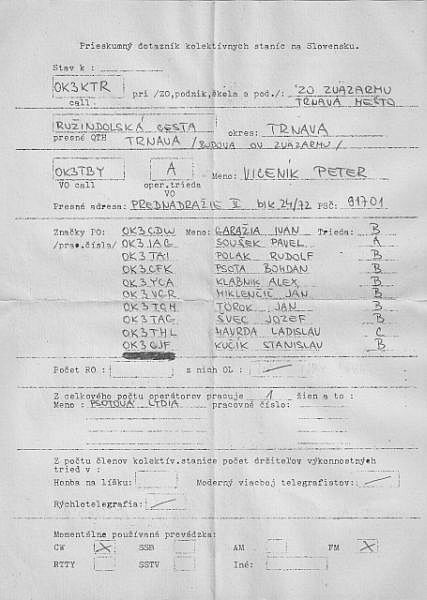 Prieskumný dotazník kolektívnych staníc na Slovensku.
Stav k :
OK3KTR pri /ZO,podnik,škola a pod./: ZO ZVÄZARMU
call TRNAVA MESTO
RUŽINDOLSKÁ CESTA okres: TRNAVA
presné QTH TRNAVA /BUDOVA OV ZVÄZARMU/
OK3TBY A Meno: VICENÍK PETER
VO call oper.trieda
VO
Presná adresa: PREDNADRAŽIE II blk 24/72 PSČ: 91701
Značky PO: OK3CDW Meno: GARAŽIA IVAN Trieda: B
/prac.čísla/ OK3IAG SOUŠEK PAVEL A
OK3TAI POLÁK RUDOLF B
OK3CFK PSOTA BOHDAN B
OK3YCA KLABNIK ALEX B
OK3VCR MIKLENČIČ JAN B
OK3TCH TÖRÖK JAN B
OK3TAC ŠVEC JOZEF B
OK3THL HAVRDA LADISLAV C
OK3CJF KUČIK STANISLAV B
Počet RO : z nich OL :
Z celkového počtu operátorov pracuje 1 žien a to :
Meno : PSOTOVÁ LYDIA pracovné číslo:
Z počtu členov kolektív.stanice počet držiteľov výkonnostných
tried v :
Honba na líšku: Moderný viacboj telegrafistov:
Rýchlotelegrafia:
Momentálne používaná prevádzka:
CW X SSB AM FM X
RTTY SSTV Iné: